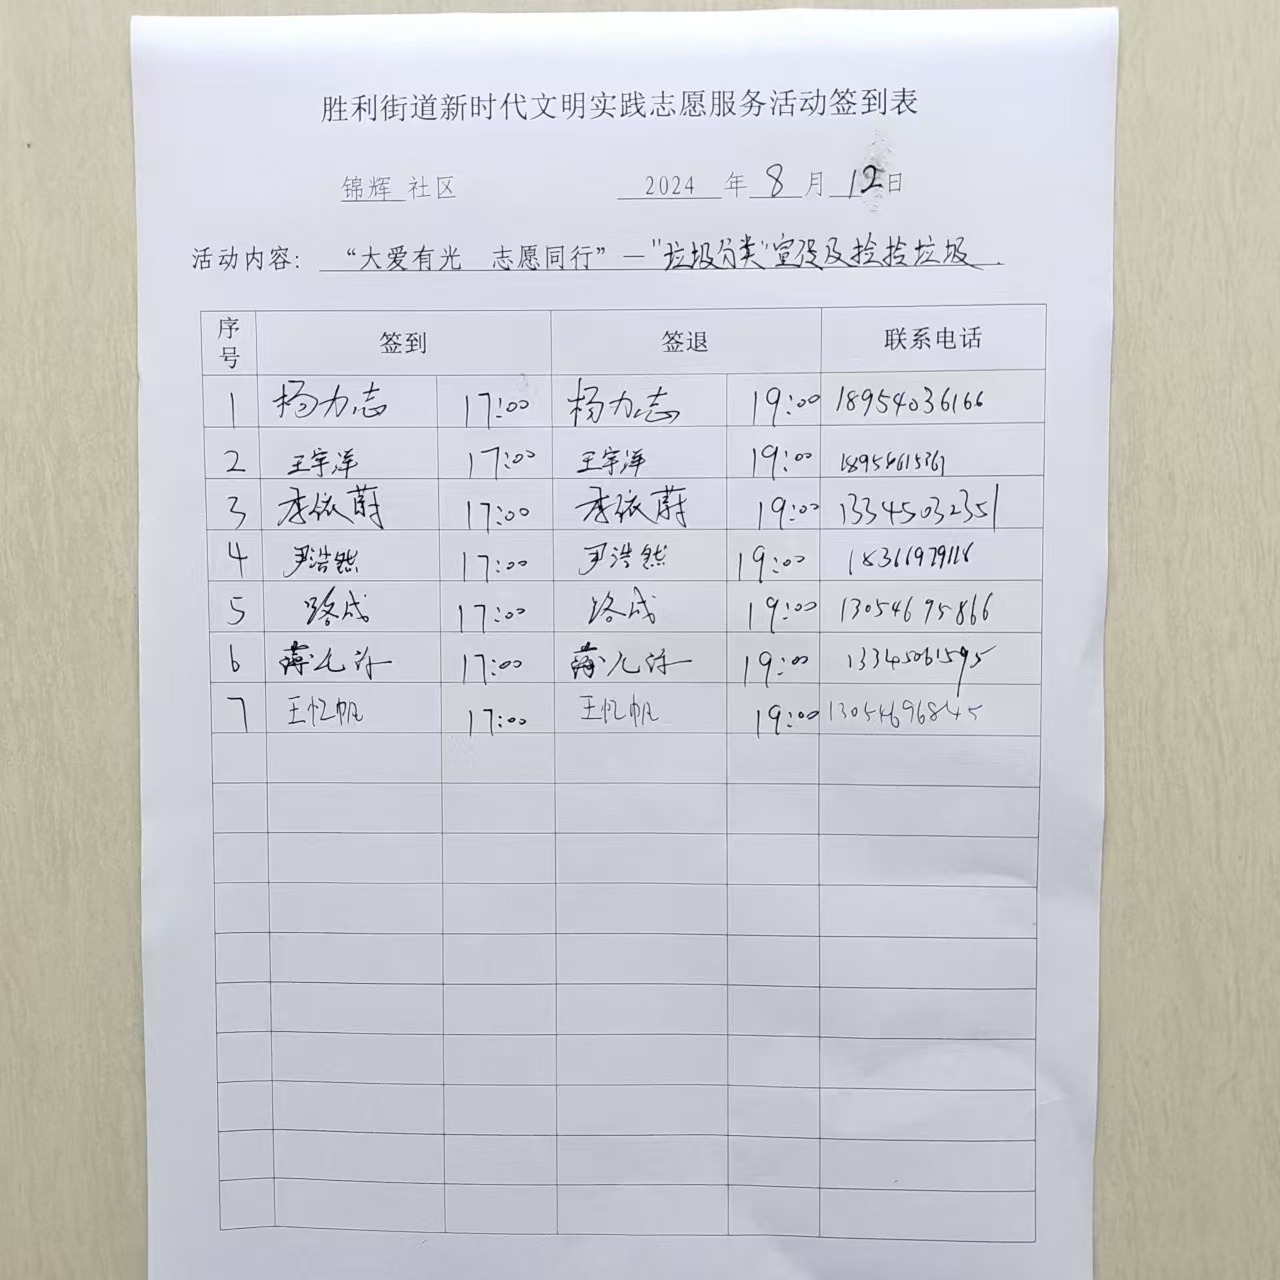 胜利街道新时代文明实践志愿服务活动签到表
锦辉 社区 2024 年 8 月 12 日
活动内容： “大爱有光 志愿同行”—“垃圾分类”宣传及捡拾垃圾.
序号 签到 签退 联系电话
1 杨力志 17:00 杨力志 19:00 18954036166
2 王宇洋 17:00 王宇洋 19:00 18954615361
3 李依蔚 17:00 李依蔚 19:00 13345032351
4 尹浩然 17:00 尹浩然 19:00
5 路成 17:00 路成 19:00 13054695866
6 薄允许 17:00 薄允许 19:00 13345061595
7 王忆帆 17:00 王忆帆 19:00 13054696845